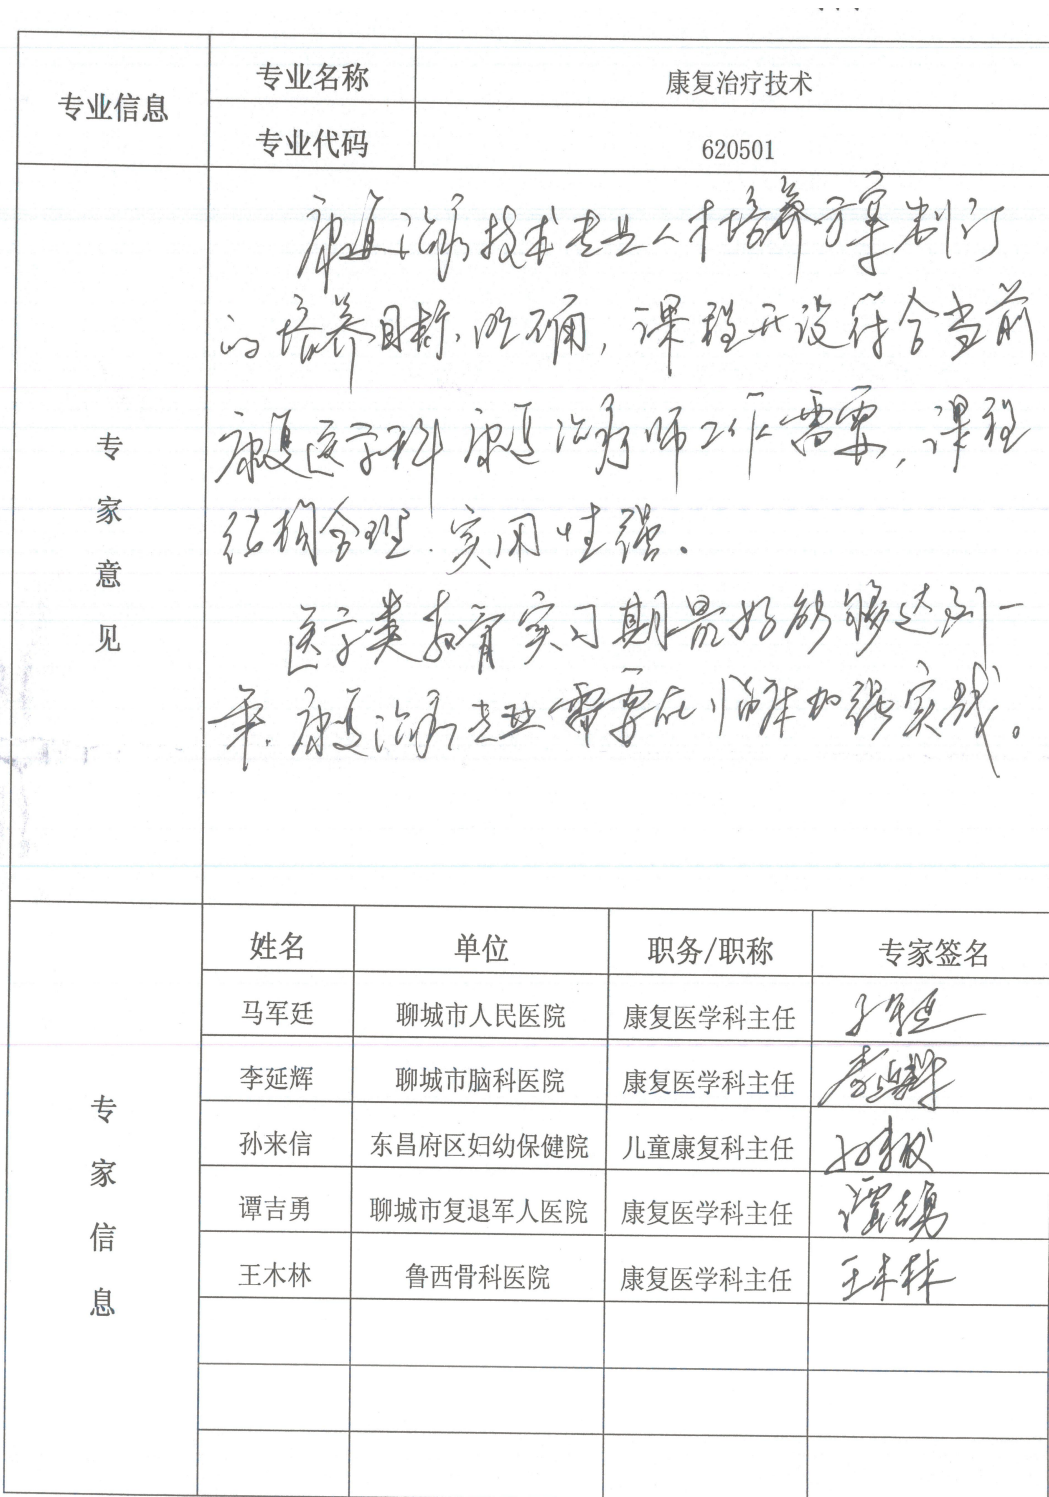 专业信息 专业名称 康复治疗技术
专业代码 620501
专家意见
康复治疗技术专业人才培养方案制订
的培养目标明确，课程开设符合当前
康复医学科康复治疗师工作需要，课程
结构合理.实用性强。
医学类教育实习期最好能够达到一
年.康复治疗专业需要在临床加强实践。
专家信息
姓名 单位 职务/职称 专家签名
马军廷 聊城市人民医院 康复医学科主任 马军廷
李延辉 聊城市脑科医院 康复医学科主任 李延辉
孙来信 东昌府区妇幼保健院 儿童康复科主任
谭吉勇 聊城市复退军人医院 康复医学科主任 谭吉勇
王木林 鲁西骨科医院 康复医学科主任 王木林